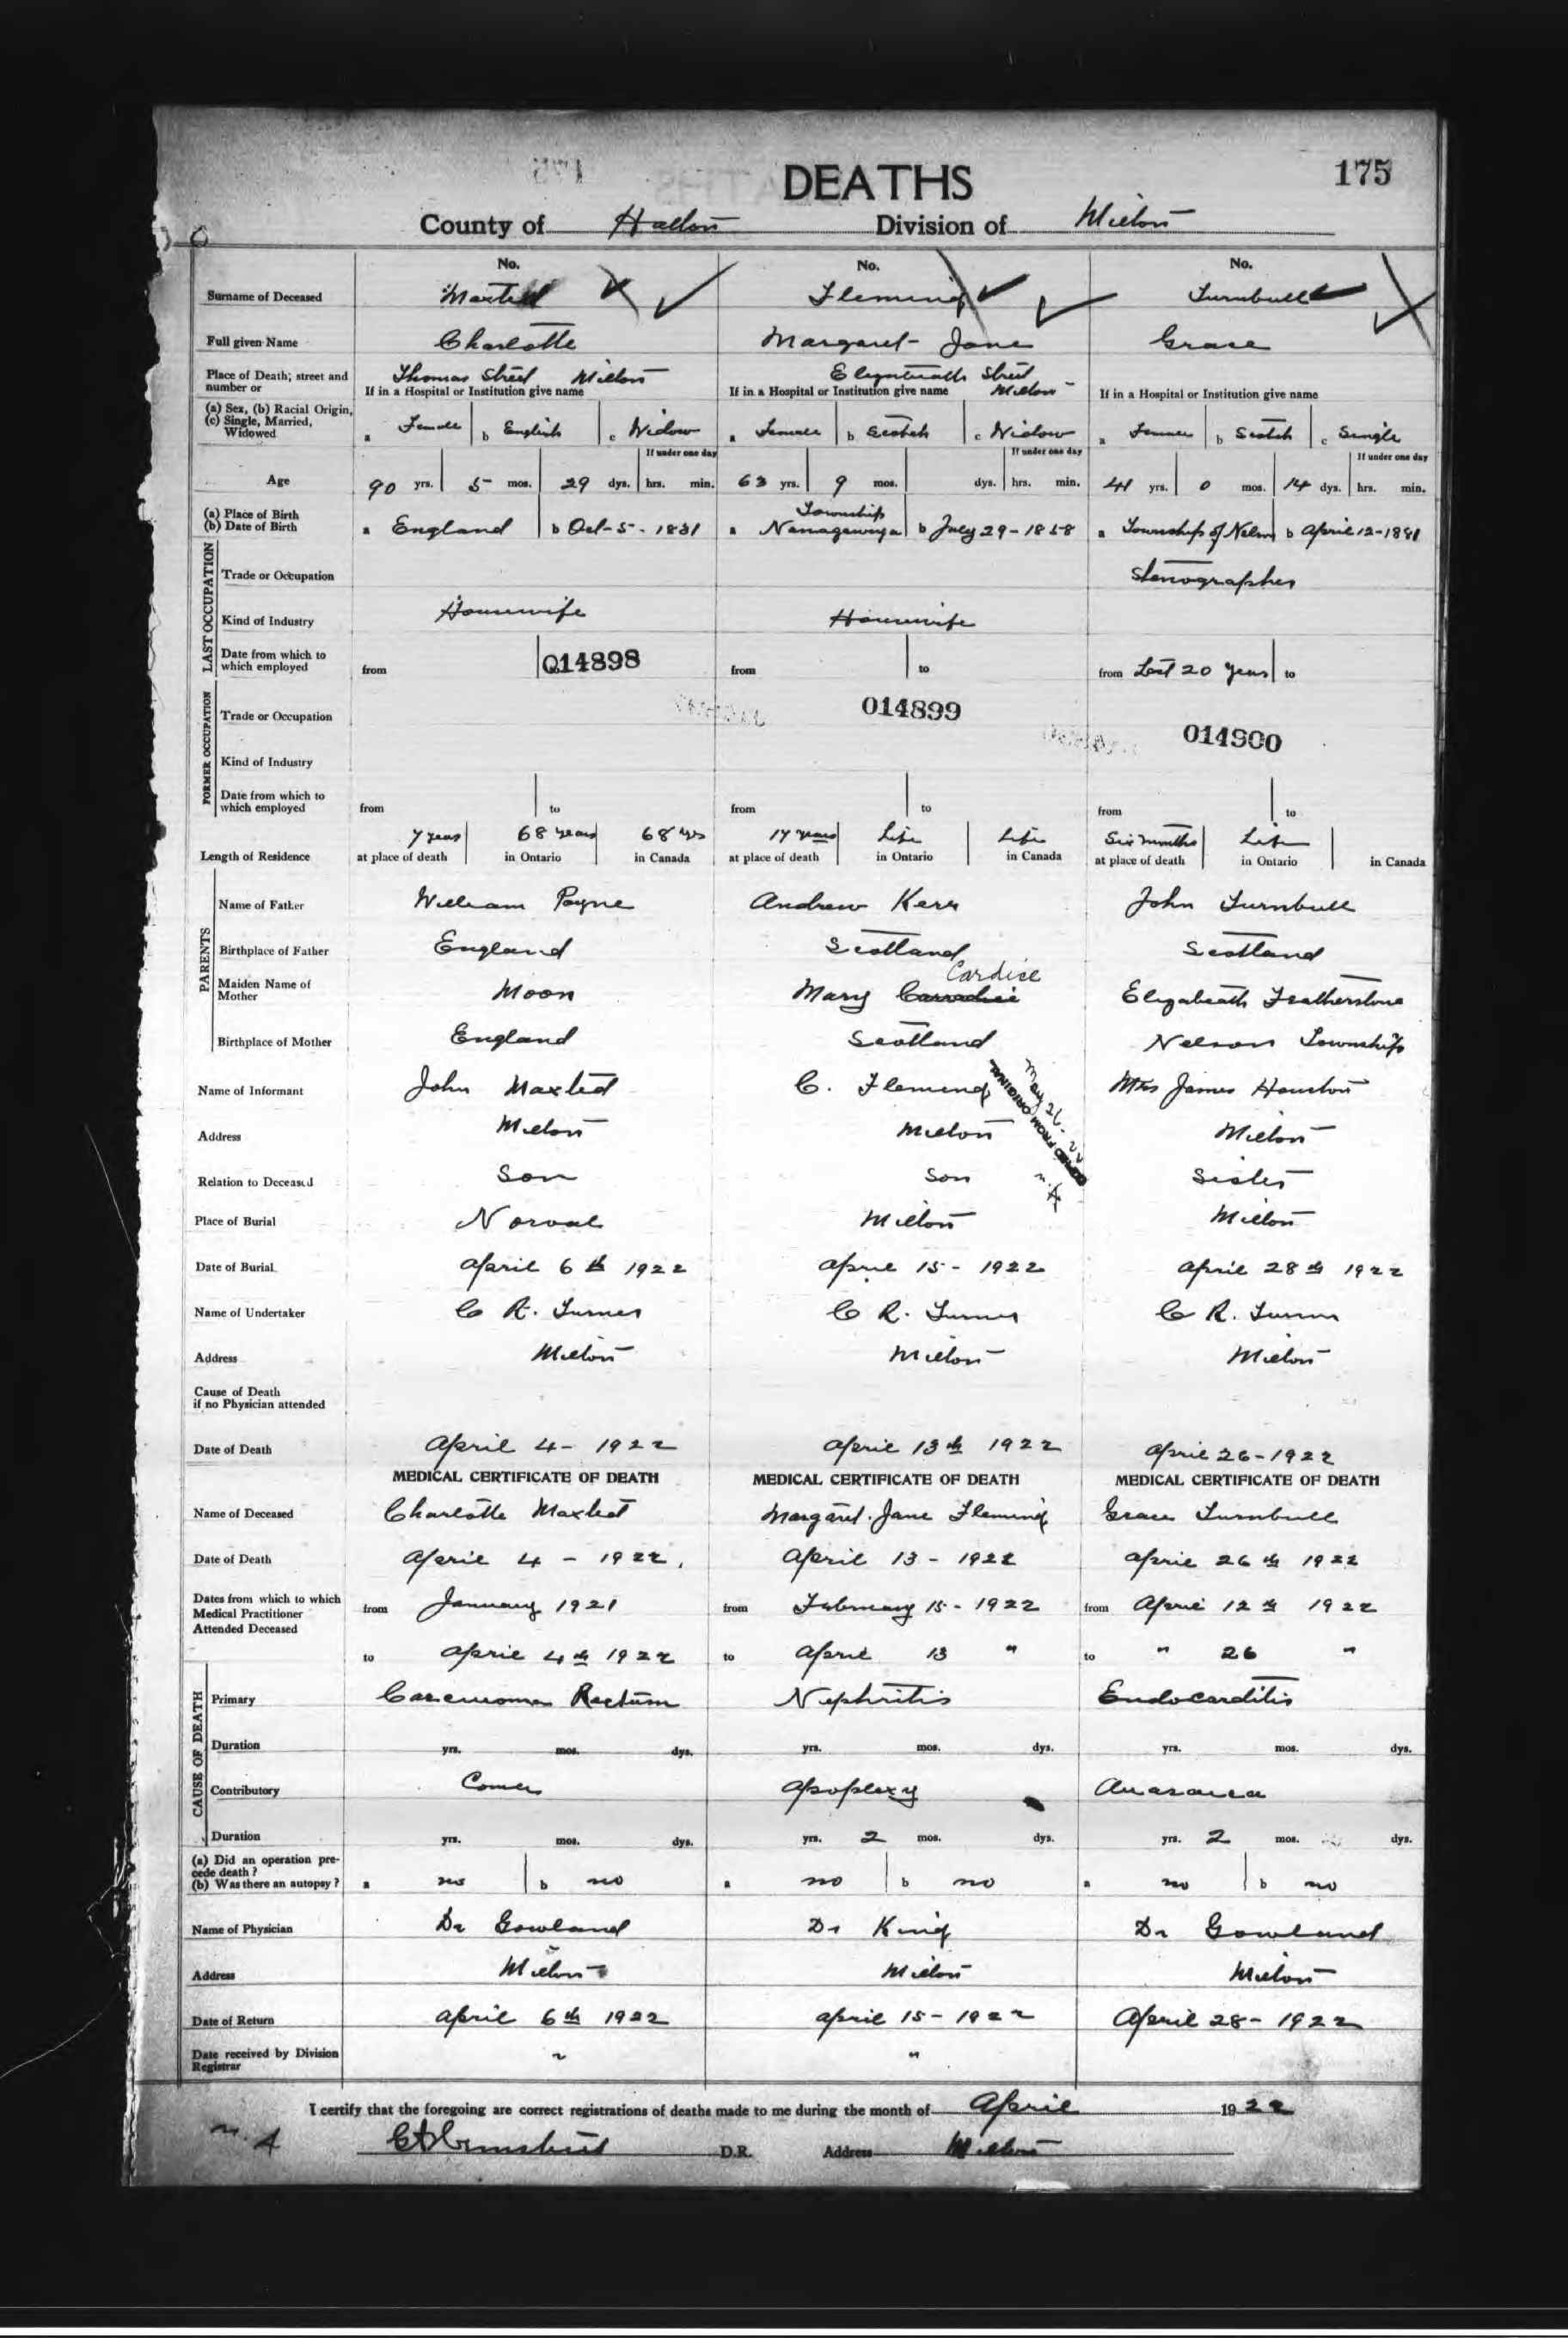 DEATHS
175
County of Halton Division of Milton
No. No. No.
Surname of Deceased Maxted Fleming Turnbull
Full given Name Charlotte Margaret Jane Grace
Place of Death; street and number or Thomas Street Milton Elizabeath Street Milton
If in a Hospital or Institution give name If in a Hospital or Institution give name If in a Hospital or Institution give name
(a) Sex, (b) Racial Origin, (c) Single, Married, Widowed a Female b English c Widow a Female b Scotch c Widow a Female b Scotch c Single
If under one day If under one day If under one day
Age 90 yrs. 5 mos. 29 dys. hrs. min. 63 yrs. 9 mos. dys. hrs. min. 41 yrs. 0 mos. 14 dys. hrs. min.
(a) Place of Birth (b) Date of Birth a England b Oct-5-1831 a Township Nassagaweya b July 29-1858 a Township of Nelson b April 12-1881
LAST OCCUPATION
Trade or Occupation Stenographer
Kind of Industry Housewife Housewife
Date from which to which employed from 014898 from to from Last 20 years to
FORMER OCCUPATION
Trade or Occupation 014899 014900
Kind of Industry
Date from which to which employed from to from to from to
Length of Residence 7 years at place of death 68 years in Ontario 68 yrs in Canada 17 years at place of death Life in Ontario Life in Canada Six months at place of death Life in Ontario in Canada
PARENTS
Name of Father William Payne Andrew Kerr John Turnbull
Birthplace of Father England Scotland Scotland
Cardice
Maiden Name of Mother Moon Mary Elizabeath Featherstone
Birthplace of Mother England Scotland Nelson Township
Name of Informant John Maxted C. Fleming Mrs James Houston
May 26-22
COPIED FROM ORIGINAL
Address Milton Milton Milton
Relation to Deceased Son Son Sister
Place of Burial Norval Milton Milton
Date of Burial April 6th 1922 April 15-1922 April 28th 1922
Name of Undertaker C R. Turner C R. Turner C R. Turner
Address Milton Milton Milton
Cause of Death if no Physician attended
Date of Death April 4-1922 April 13th 1922 April 26-1922
MEDICAL CERTIFICATE OF DEATH MEDICAL CERTIFICATE OF DEATH MEDICAL CERTIFICATE OF DEATH
Name of Deceased Charlotte Maxted Margaret Jane Fleming Grace Turnbull
Date of Death April 4-1922. April 13-1922 April 26th 1922
Dates from which to which Medical Practitioner Attended Deceased from January 1921 from February 15-1922 from April 12th 1922
to April 4th 1922 to April 13 " to " 26 "
CAUSE OF DEATH
Primary Carcinoma Rectum Nephritis Endocarditis
Duration yrs. mos. dys. yrs. mos. dys. yrs. mos. dys.
Contributory Coma Apoplexy Anasarca
Duration yrs. mos. dys. yrs. 2 mos. dys. yrs. 2 mos. dys.
(a) Did an operation precede death? (b) Was there an autopsy? a no b no a no b no a no b no
Name of Physician Dr Gowland Dr King Dr Gowland
Address Milton Milton Milton
Date of Return April 6th 1922 April 15-1922 April 28-1922
Date received by Division Registrar " "
I certify that the foregoing are correct registrations of deaths made to me during the month of April 1922
D.R. Address Milton